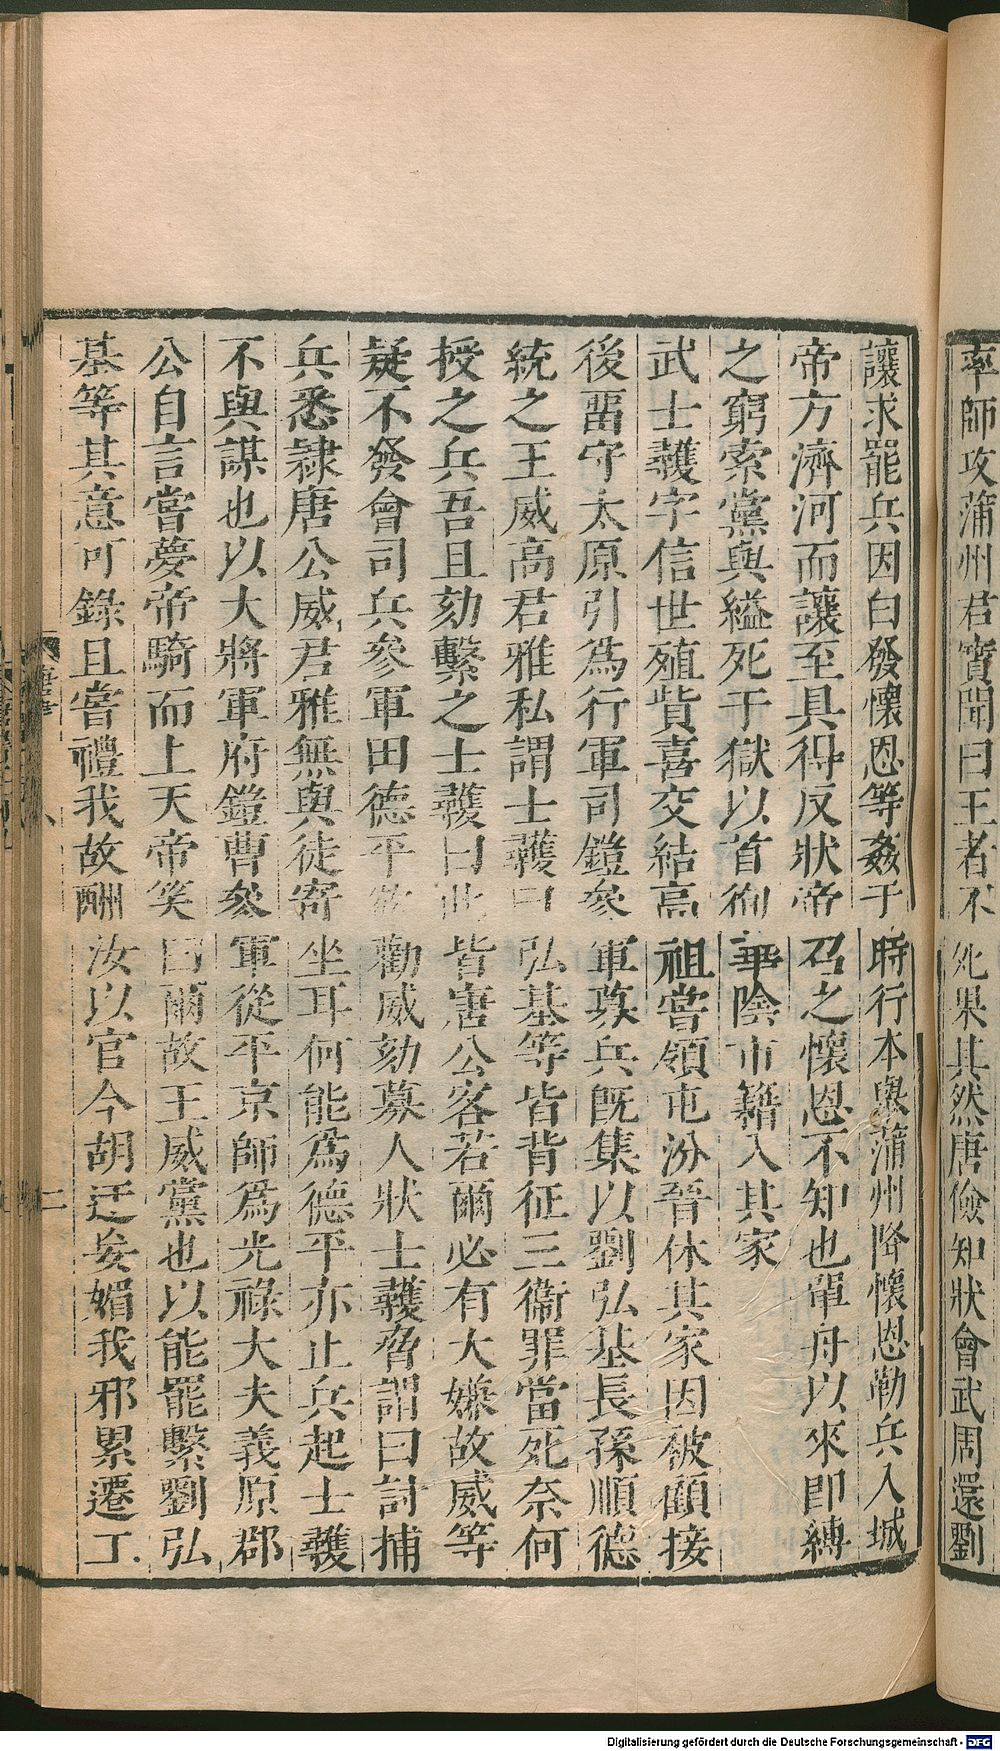 率師攻蒲州君寶聞曰王者不死果其然唐儉知狀會武周還劉
讓求罷兵因白發懷恩等姦于時行本與蒲州降懷恩勒兵入城
帝方濟河而讓至具得反狀帝召之懷恩不知也單舟以來即縛
之窮索黨與縊死于獄以首徇華陰市籍入其家
武士彠字信世殖貲喜交結高祖嘗領屯汾晉休其家因被顧接
後畱守太原引爲行軍司鎧參軍募兵旣集以劉弘基長孫順德
統之王威高君雅私謂士彠曰弘基等皆背征三衞罪當死奈何
授之兵吾且劾繫之士彠曰此皆唐公客若爾必有大嫌故威等
疑不發會司兵參軍田德平欲勸威劾募人狀士彠脅謂曰討捕
兵悉隷唐公威君雅無與徒寄坐耳何能爲德平亦止兵起士彠
不與謀也以大將軍府鎧曹參軍從平京師爲光祿大夫義原郡
公自言嘗夢帝騎而上天帝笑曰爾故王威黨也以能罷繫劉弘
基等其意可錄且嘗禮我故酬汝以官今胡迂妄媚我邪累遷工
唐書
二
Digitalisierung gefördert durch die Deutsche Forschungsgemeinschaft - DFG